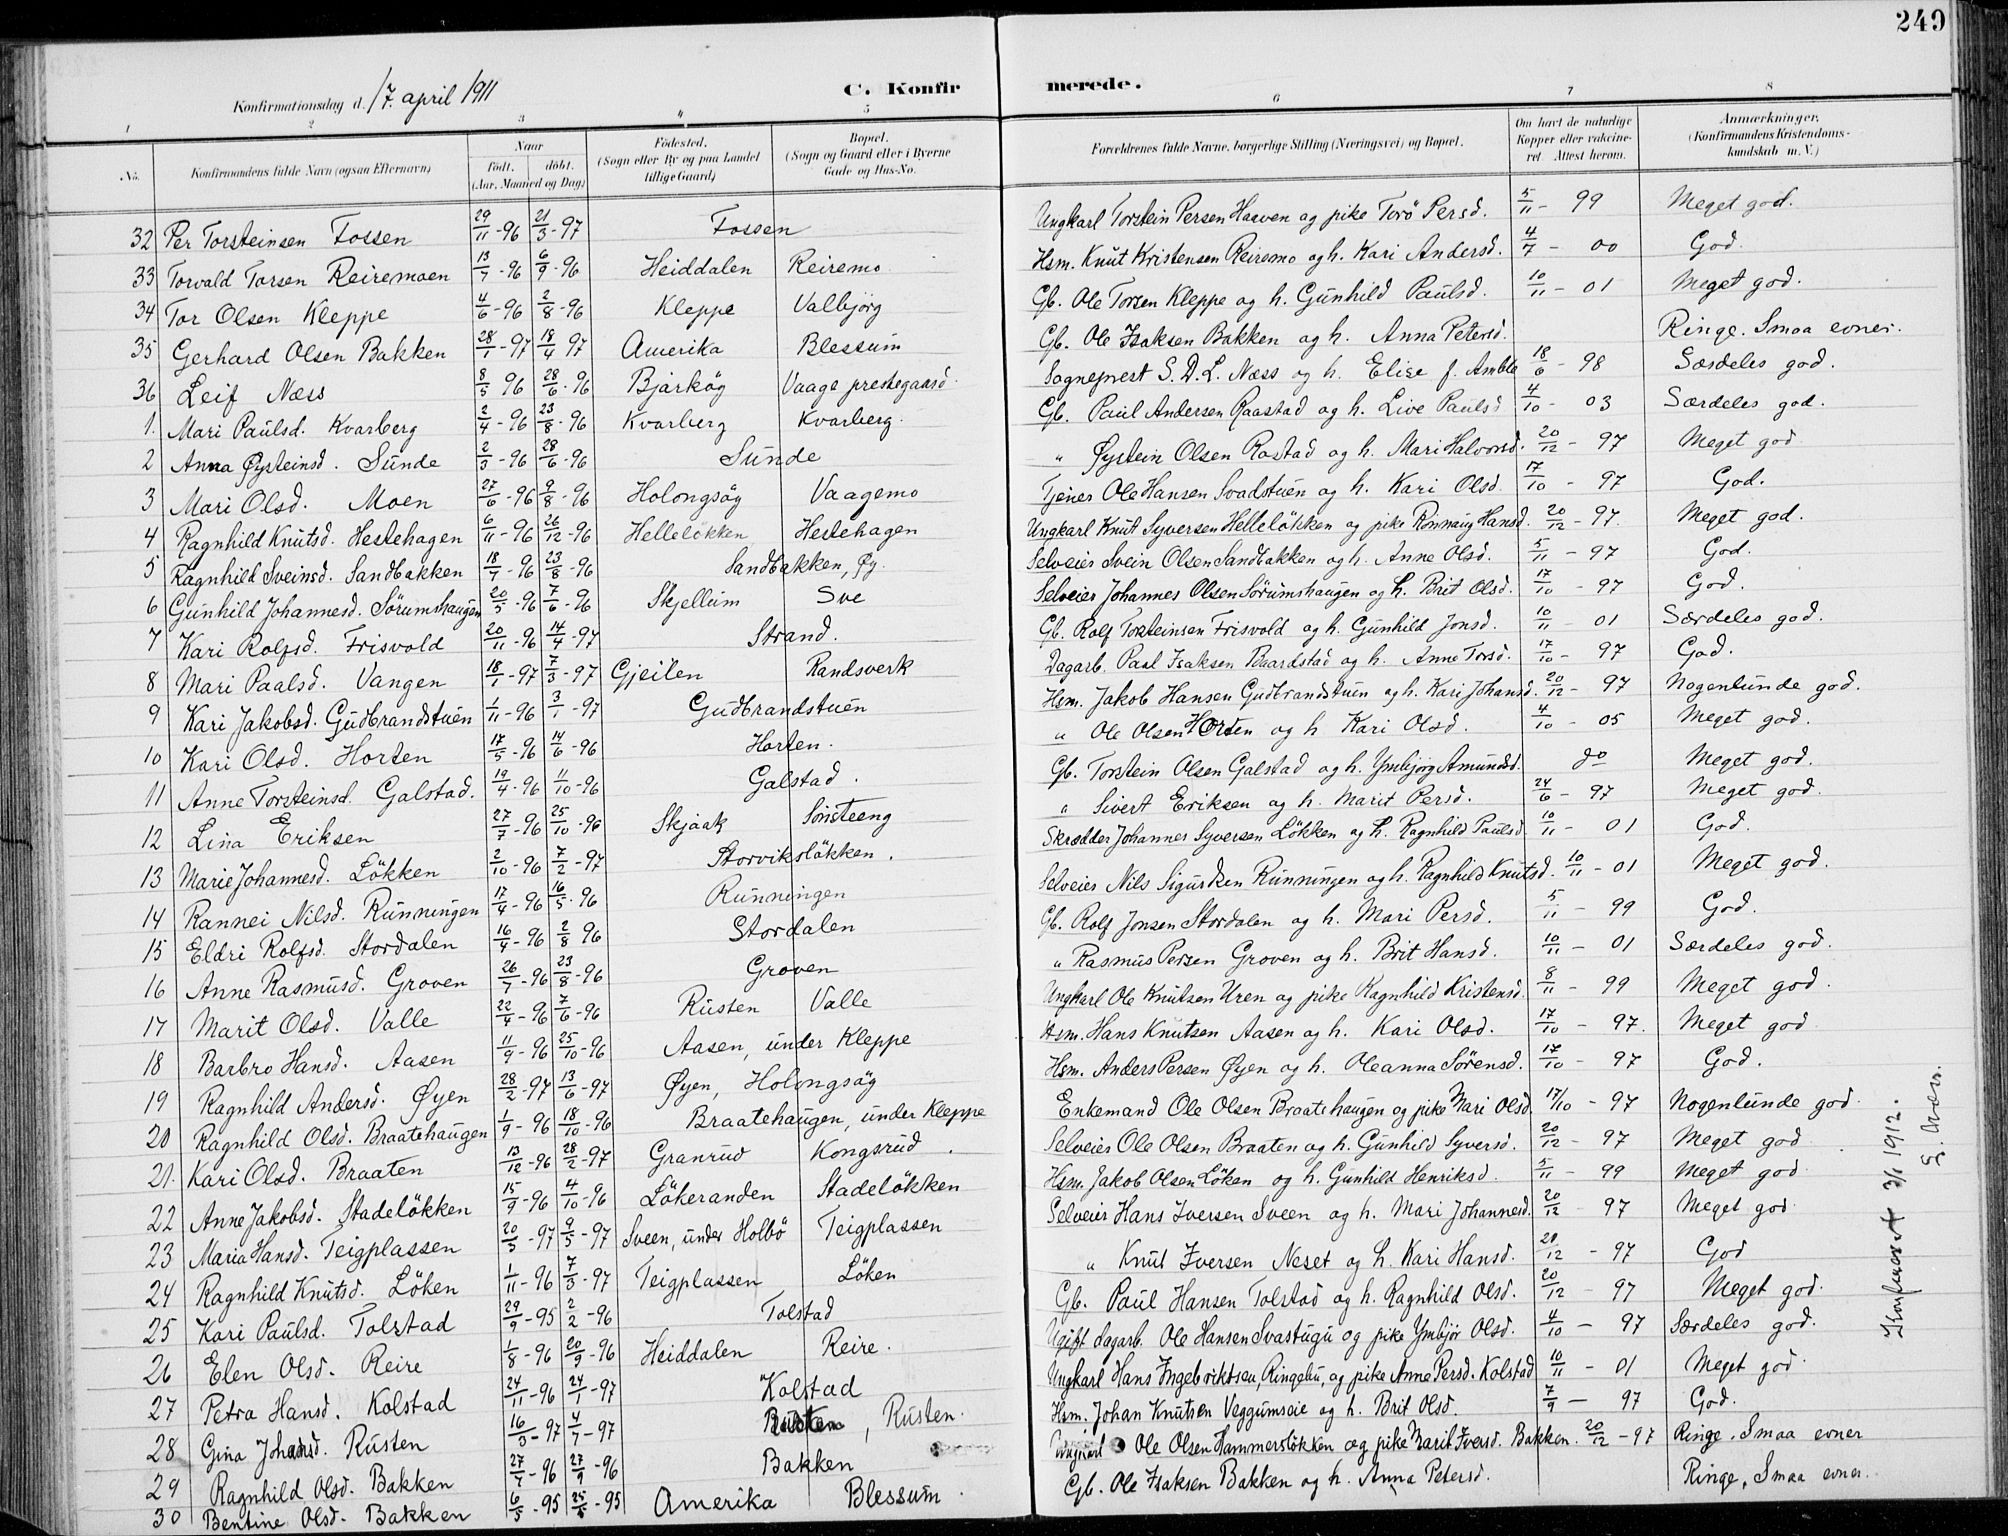 249
Konfirmationsdag d. 17. april 1911
C. Konfirmerede.
1 2 3 4 5 6 7 8
No. Konfirmandens fulde Navn (ogsaa Efternavn) Naar født. døbt. (Aar, Maaned og Dag) Fødested. (Sogn eller By og paa Landet tillige Gaard) Bopæl. (Sogn og Gaard eller i Byerne Gade og Hus-No. Forældrenes fulde Navne, borgerlige Stilling (Næringsvei) og Bopæl. Om havt de naturlige Kopper eller vaccineret Attest herom. Anmærkninger. (Konfirmandens Kristendomskundskab m. V.)
32 Per Torsteinsen Fossen 29/11-96 21/3-97 Fossen Ungkarl Torstein Persen Haaven og pike Torö Persd. 5/11-99 Meget god.
33 Torvald Torsen Reiremoen 13/7-96 6/9-96 Heiddalen Reiremo Hsm. Knut Kristensen Reiremo og h. Kari Andersd. 4/7-00 God.
34 Tor Olsen Kleppe 4/6-96 2/8-96 Kleppe Valbjörg Gb. Ole Torsen Kleppe og h. Gunhild Paulsd. 10/11-01 Meget god.
35 Gerhard Olsen Bakken 28/1-97 18/4 97 Amerika Blessum Gb. Ole Isaksen Bakken og h. Anna Petersd. Ringe. Smaa evner.
36 Leif Næss 8/5 96 28/6-96 Bjarköy Vaage prestegaard. Sogneprest S. D. L. Næss og h. Elise f. Amble 18/6-98 Særdeles god.
1. Mari Paulsd. Kvarberg 2/4-96 23/8-96 Kvarberg Kvarberg. Gb. Paul Andersen Raastad og h. Live Paulsd 4/10-03 Særdeles god.
2 Anna Øysteinsd. Sunde 2/3-96 28/6-96 Sunde " Øystein Olsen Rastad og h. Mari Halvorsd. 20/12-97 Meget god
3 Mari Olsd. Moen 27/6-96 9/8-96 Holongsöy Vaagemo Tjener Ole Hansen Svadstuen og h. Kari Olsd. 17/10-97 God.
4 Ragnhild Knutsd. Hestehagen 6/11-96 26/12-96 Hellelökken Hestehagen Ungkarl Knut Syversen Hellelökken og pike Rönnaug Hansd. 20/12-97. Meget god.
5 Ragnhild Sveinsd. Sandbakken 18/7-96 23/8-96 Sandbakken, Øy. Selveier Svein Olsen Sandbakken og h. Anne Olsd. 5/11-97 God.
6 Gunhild Johannesd. Sörumshaugen 20/5-96 7/6-96 Skjellum Sve Selveier Johannes Olsen Sörumshaugen og h. Brit Olsd. 17/10-97 God.
7 Kari Rolfsd. Frisvold 20/11-96 14/4-97 Strand. Gb. Rolf Torsteinsen Frisvold og h. Gunhild Jonsd. 10/11-01 Særdeles god.
8 Mari Paalsd. Vangen 18/1-97 7/3-97 Gjeilen Randsverk Dagarb. Paal Isaksen Baardstad og h. Anne Torsd. 17/10-97 God.
9 Kari Jakobsd. Gudbrandstuen 1/11-96 3/1-97 Gudbrandstuen Hsm. Jakob Hansen Gudbrandstuen og h. Kari Johansd. 20/12-97 Nogenlunde god.
10 Kari Olsd. Horten 17/5-96 14/6-96 Horten. " Ole Olsen Horten og h Kari Olsd. 4/10-05 Meget god.
11 Anne Torsteinsd. Galstad. 19/4-96 11/10-96 Galstad. Gb. Torstein Olsen Galstad og h. Ymbjørg Amundsd. do Meget god.
12 Lina Eriksen 27/7-96 25/10-96 Skjaak Sønsteeng " Sivert Eriksen og h. Marit Persd. 24/6-97 Meget god.
13 Marie Johannesd. Lökken 2/10-96 7/2-97 Storvikslökken. Skrædder Johannes Syversen Lökken og h. Ragnhild Paulsd 10/11-01 God.
14 Rannei Nilsd. Runningen 17/4-96 16/5-96 Runningen Selveier Nils Sigurdsen Runningen og h. Ragnhild Knutsd. 10/11-01 Meget god.
15 Eldri Rolfsd. Stordalen 16/4-96 2/8 96 Stordalen Gb. Rolf Jonsen Stordalen og h. Mari Persd. 5/11-99 God.
16 Anne Rasmusd. Groven 26/7-96 23/8-96 Groven " Rasmus Persen Groven og h. Brit Hansd. 10/11-01 Særdeles god.
17 Marit Olsd. Valle 22/4-96 7/6-96 Rusten Valle Ungkarl Ole Knutsen Uren og pike Ragnhild Kristensd. 8/11-99 Meget god.
18 Barbro Hansd. Aasen 11/9-96 25/10-96 Aasen, under Kleppe Hsm. Hans Knutsen Aasen og h. Kari Olsd. 17/10-97. Meget god
19 Ragnhild Andersd. Øyen 28/2-97 13/6-97 Øyen, Holongsöy Hsm. Anders Persen Øyen og h. Oleanna Sörensd. 17/10-97 God.
20 Ragnhild Olsd. Braatehaugen 1/9-96 18/10-96 Braatehaugen, under Kleppe Enkemand Ole Olsen Braatehaugen og pike Mari Olsd. 17/10-97 Nogenlunde god.
21. Kari Olsd. Braaten 13/12-96 28/2-97 Granrud Kongsrud Selveier Ole Olsen Braaten og h. Gunhild Syversd. 20/12-97 Meget god
22 Anne Jakobsd. Stadelökken 15/9-96 4/10-96 Lökeranden Stadelökken Hsm. Jakob Olsen Löken og h. Gunhild Henriksd. 5/11-99 Meget god.
23 Maria Hansd. Teigplassen 20/3-97 9/5-97 Sveen, under Holbö Teigplassen Selveier Hans Iversen Sveen og h. Mari Johannesd. 20/12-97 Meget god
24 Ragnhild Knutsd. Löken 1/11-96 7/3-97 Teigplassen Löken " Knut Iversen Neset og h. Kari Hansd. 20/12-97 God
25 Kari Paulsd. Tolstad 29/9-95 2/2-96 Tolstad Gb. Paul Hansen Tolstad og h. Ragnhild Olsd. 20/12-97 Meget god.
26 Elen Olsd. Reire 1/8-96 20/9-96 Heiddalen Reire. Ugift dagarb. Ole Hansen Svastugu og pike Ymbjør Olsd. 4/10-97 Særdeles god.
27 Petra Hansd. Kolstad 24/11-96 24/1-97 Kolstad Ungkarl Hans Ingebriktsen, Ringebu, og pike Anne Persd. Kolstad 10/11-01 Meget god.
28 Gina Johansd. Rusten 16/3-97 4/7-97 Rusten, Rusten. Hsm. Johan Knutsen Veggumseie og h. Brit Olsd. 7/9-97 God.
29 Ragnhild Olsd. Bakken 27/7-96 27/9-96 Bakken Ungkarl Ole Olsen Hammerslökken og pike Marit Iversd. Bakken. 20/12-97 Ringe. Smaa evner
30 Bentine Olsd. Bakken 6/5-95 25/5-95 Amerika Blessum. Gb. Ole Isaksen Bakken og h. Anna Petersd. Ringe. Smaa evner.
Konfereret 3/1 1912.